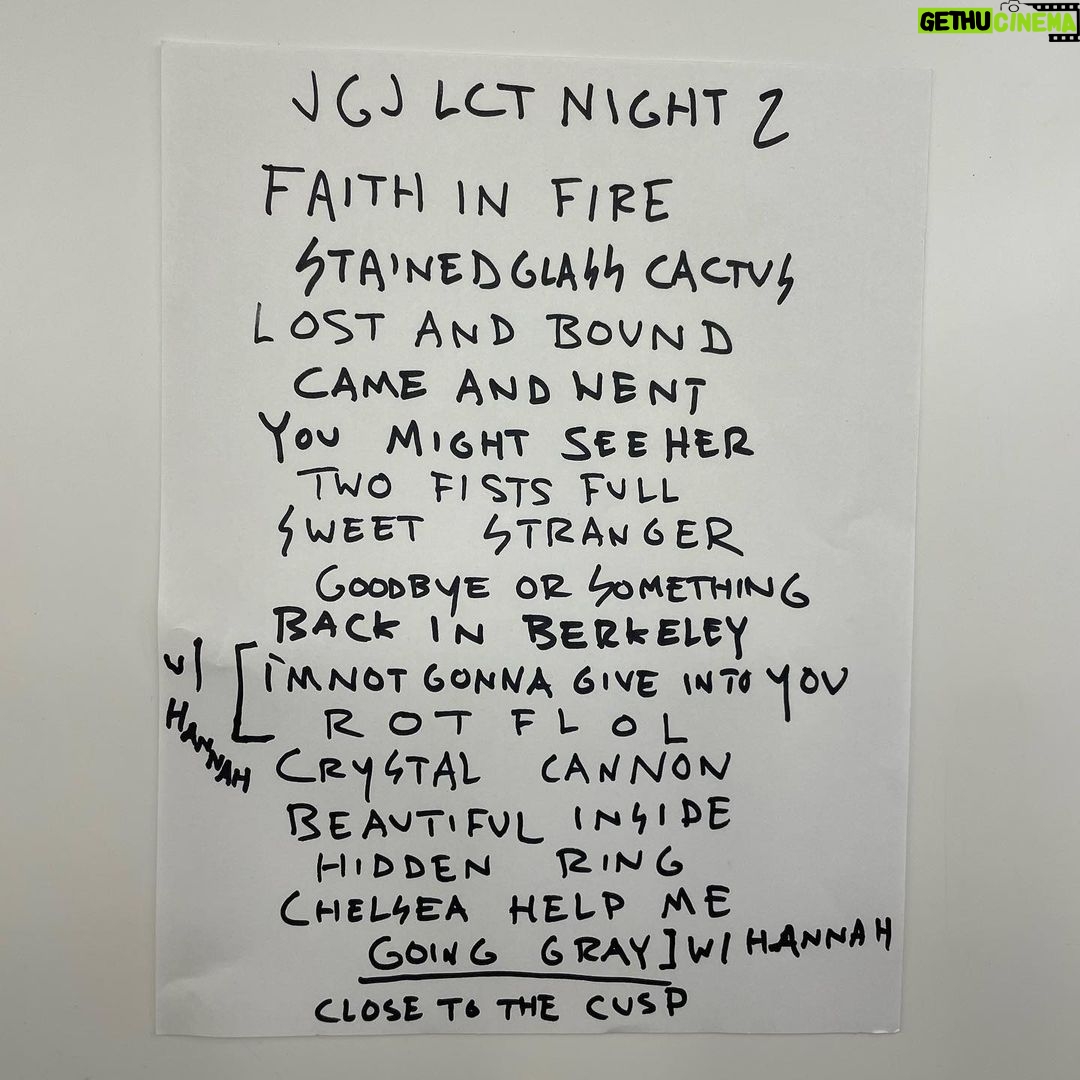 GETHUCINEMA
JGJ LCT NIGHT 2
FAITH IN FIRE
STAINED GLASS CACTUS
LOST AND BOUND
CAME AND WENT
YOU MIGHT SEE HER
TWO FISTS FULL
SWEET STRANGER
GOODBYE OR SOMETHING
BACK IN BERKELEY
W/ HANNAH [
I'M NOT GONNA GIVE INTO YOU
ROTFLOL
CRYSTAL CANNON
BEAUTIFUL INSIDE
HIDDEN RING
CHELSEA HELP ME
GOING GRAY ] W/ HANNAH
CLOSE TO THE CUSP